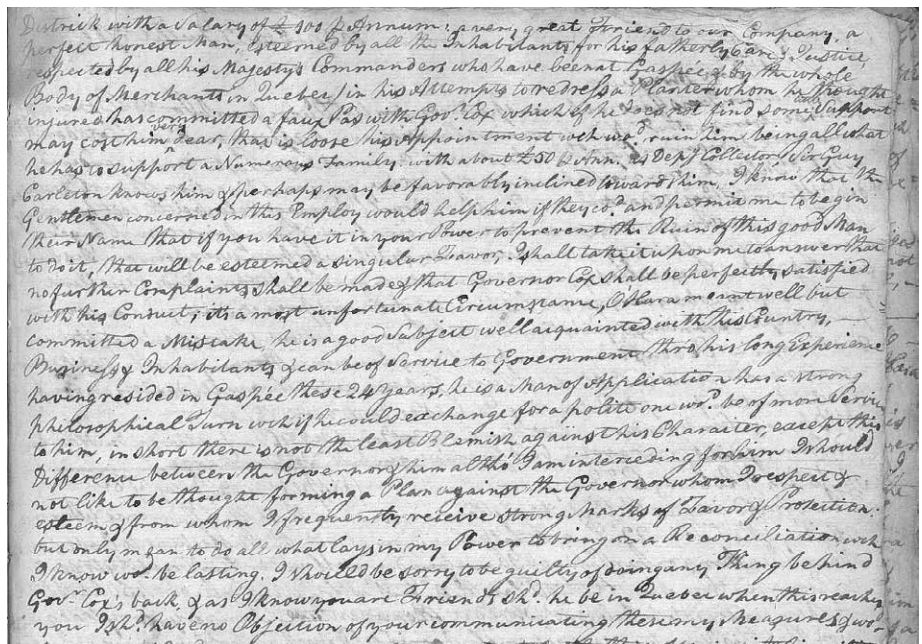 District with a Salary of £100 p Annum: a very great Friend to our Company, a
perfect honest Man, esteemed by all the Inhabitants for his fatherly Care & Justice,
respected by all his Majesty's Commanders who have been at Gaspée & by the whole
Body of Merchants in Quebec, in his Attempts to redress a Planter whom he thought
injured has committed a faux Pas with Govr. Cox which if he does not find some Support
may cost him very dear, that is loose his Appointment wch wod. ruin him being all what
he has to support a Numerous Family with about £50 p Ann. as Depy Collector, Sir Guy
Carleton knows him & perhaps may be favorably inclined toward him, I know that the
Gentlemen concerned in this Employ would help him if they cod. and permit me to begin
their Name that if you have it in your Power to prevent the Ruin of this good Man
to do it, that will be esteemed a singular Favor, I shall take it upon me to answer that
no further Complaints shall be made & that Governor Cox shall be perfectly satisfied
with his Consuit; its a most unfortunate Circumstance, O'Hara meant well but
committed a Mistake, he is a good Subject well acquainted with this Country,
Business & Inhabitants & can be of Service to Government thro his long Experience
having resided in Gaspée these 24 years, he is a Man of Application has a strong
philosophical Turn wch if he could exchange for a polite one wod. be of more Servic
to him, in short there is not the least Blemish against his Character, except this
Difference between the Governor & him altho' I am interceding for him I should
not like to be thought forming a Plan against the Governor whom I respect &
esteem & from whom I frequently receive strong Marks of Favor & Protection.
but only mean to do all what lays in my Power to bring on a Reconciliation wch
I know wod. be lasting. I should be sorry to be guilty of doing any Thing behind
Govr. Cox's back, & as I know you are Friends shd. he be in Quebec when this reaches
you I shd. have no Objection of your communicating these my Measures & wo-